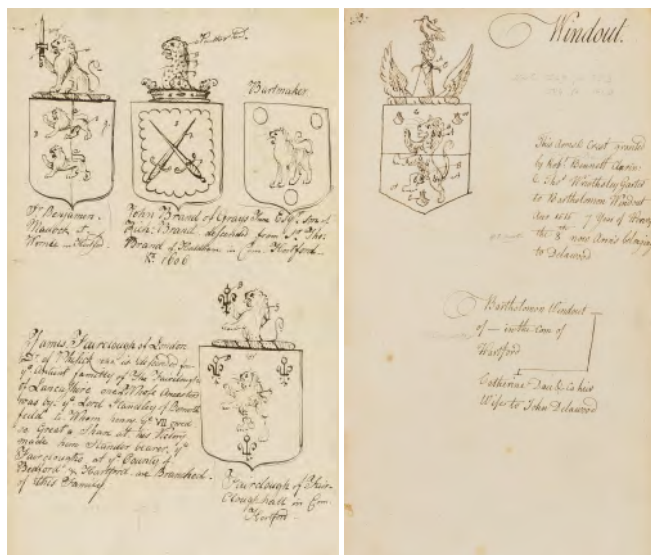 Bartmaker
Sr. Benjamen
Maddock at
Wynde in Hartford
John Brand of Grays Inne Esqr. son of
Rich: Brand descended from Sr. Tho:
Brand of in Com. Hartford
1606
James Fairclough of London
Dr. of Phisick was is desended from
ye. Antient familey of the Fairclough
of Lancashire one of Whose Ancestors
was by ye. Lord Standley
to Whom henry ye. VII owed
so Great a Share at his Victory
made him Standar bearer, ye.
Faircloughs at ye. County of
Bedford & Hartford are Branched
of this Familey
Fairclough of Fair-
Clough hall in Com.
Hertford
Windout.
This Arms & Crest granted
by Robt. Bennett
& Thos. Wriothsley Garter
to Bartholomew Windout
Ano 1515 7 year of Henry
the 8th now Arms belonging
to Delawood
Bartholomew Windout
of — in the Com of
Hartford
Catherine Dau. & Coheir
Wife to John Delawood